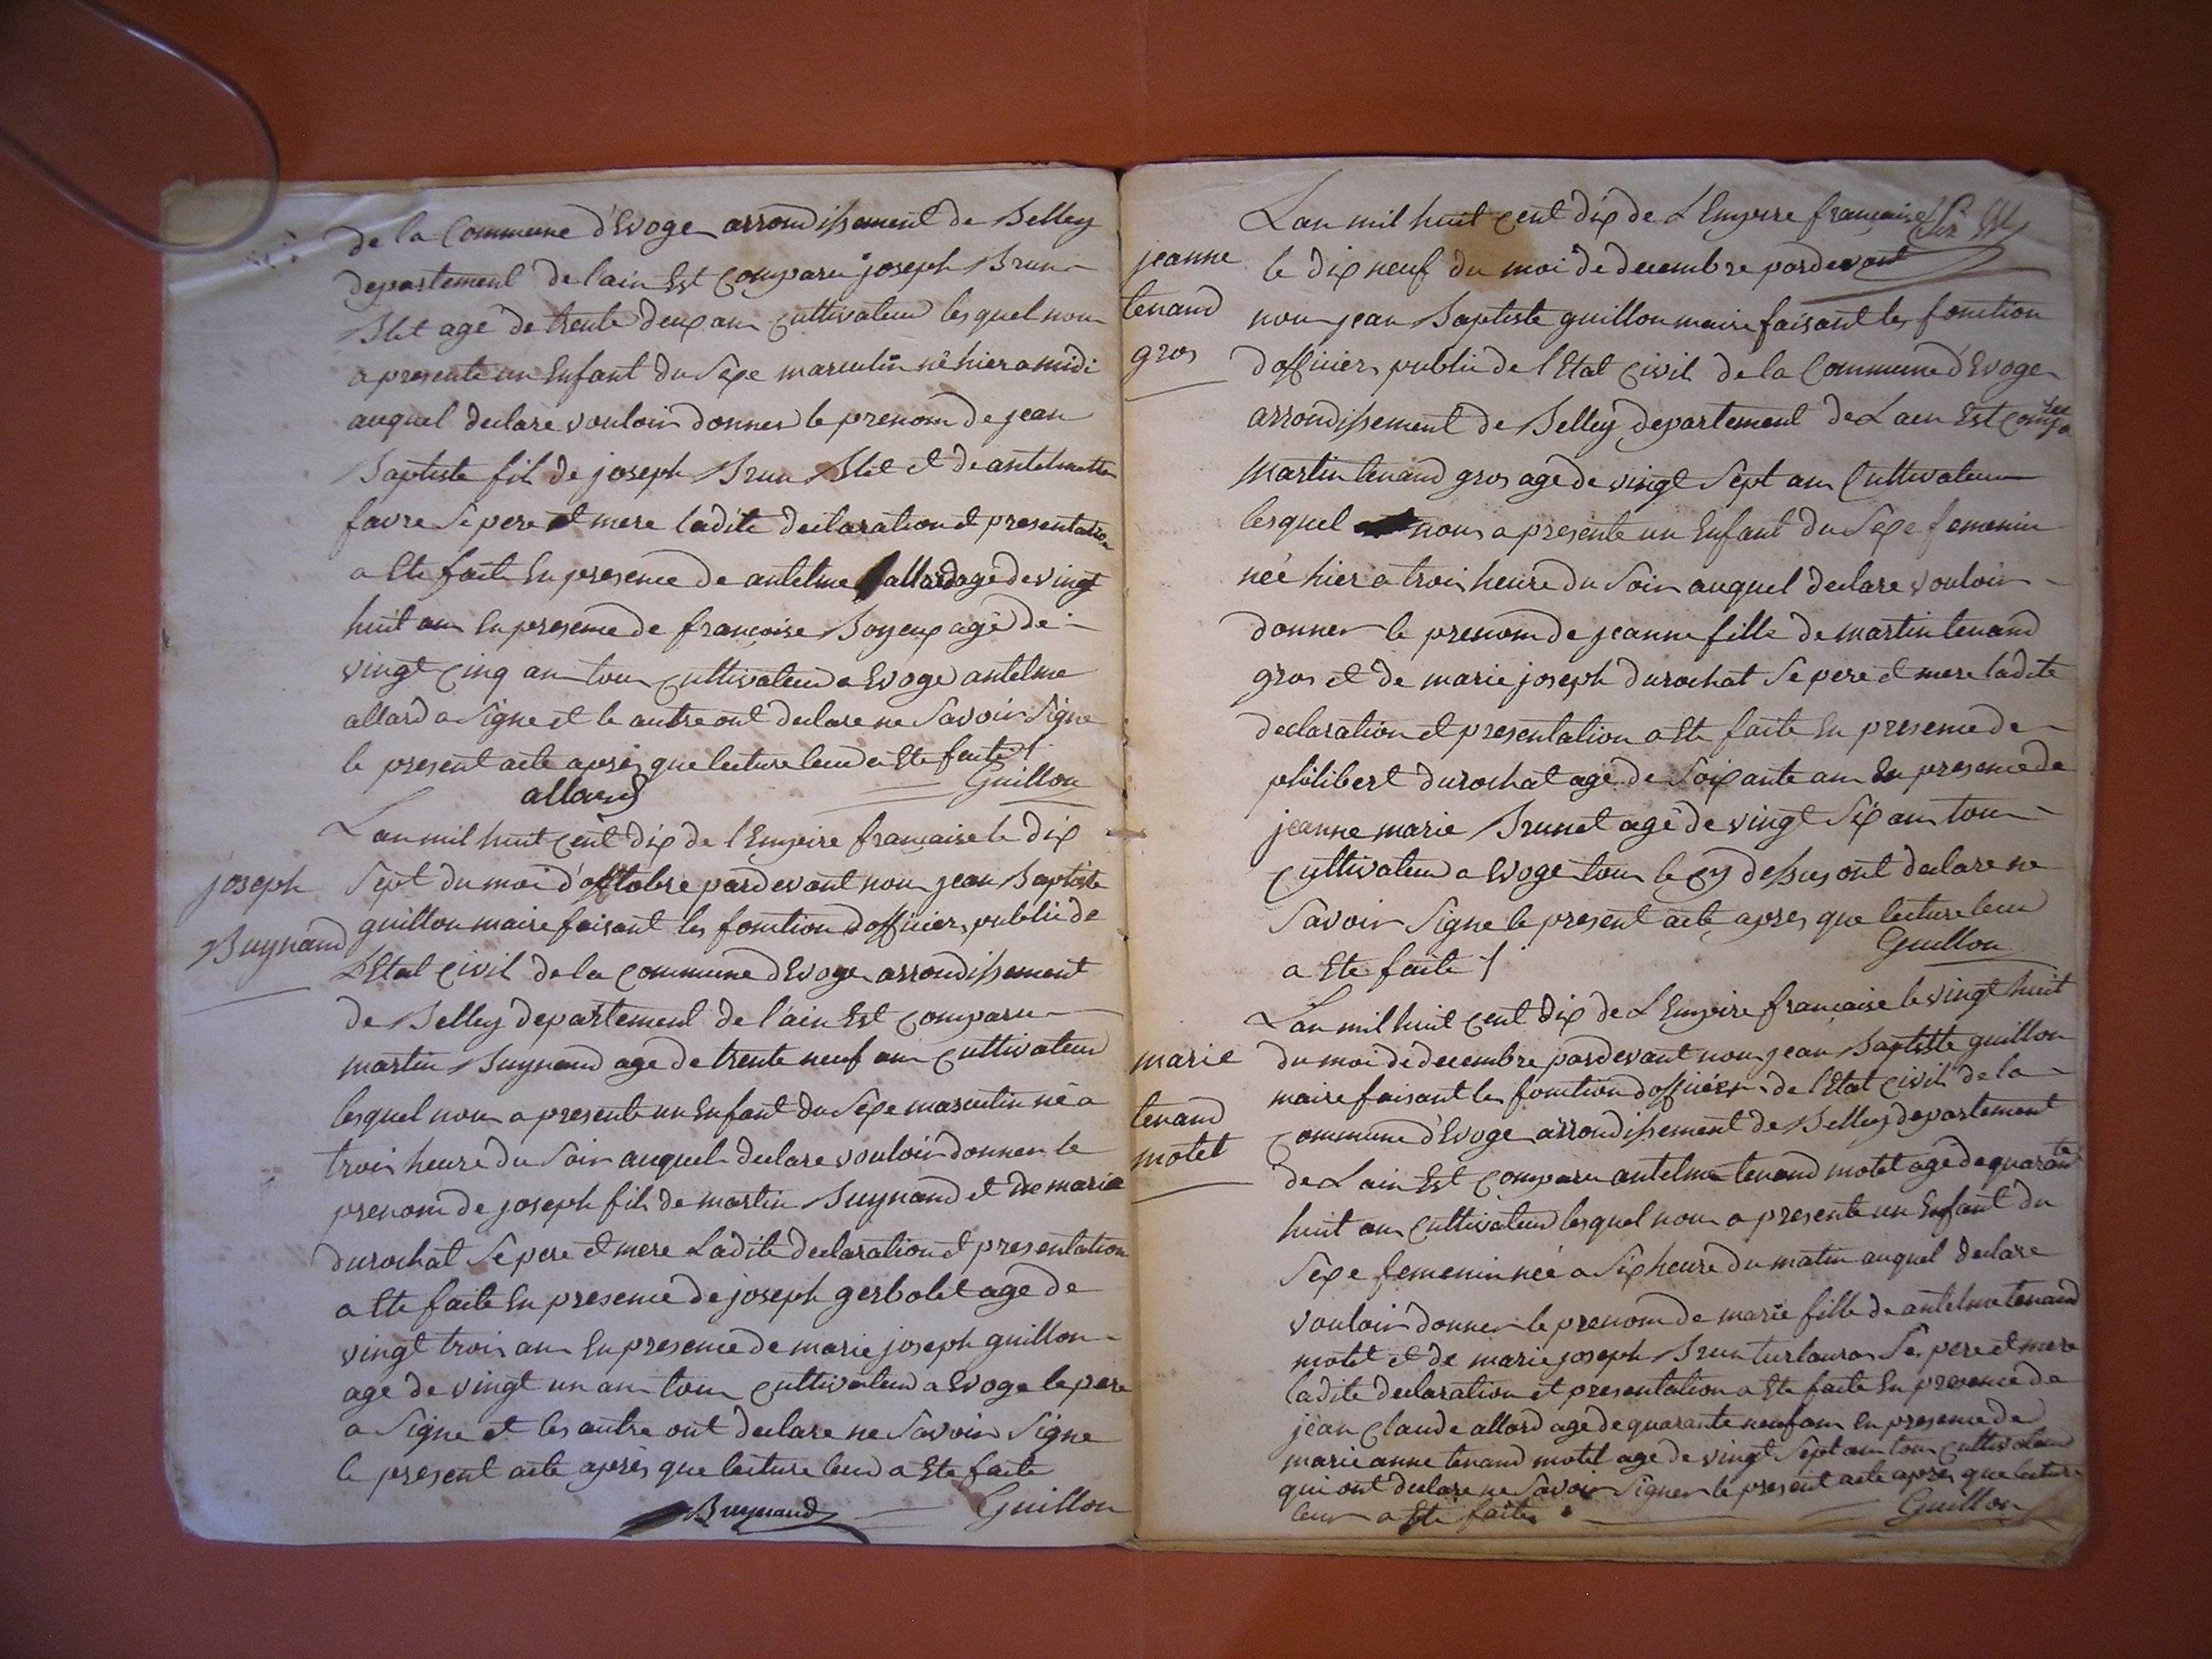 de la Commune d'Evoge arrondissement de Belley
departement de l'ain Est Comparu joseph Brun
Blet agé de trente deux an cultivateur lesquel nou
a presente un Enfant du Sexe masculin né hier a midi
auquel declare vouloir donner le prenom de jean
Baptiste fil de joseph Brun Blet et de antelmette
favre Se pere et mere ladite declaration et presentation
a Ete faite En presence de antelme allard agé de vingt
huit an En presence de françoise Boyeux agé de
vingt Cinq an tou Cultivateur a Evoge antelme
allard a Signe et le autre ont declare ne Savoir Signe
le present acte après que lecture leur a Ete faite /
allard Guillon
Lan mil huit Cent dix de l'Empire française le dix
joseph
Buynand
Sept du moi d'octobre pardevant nou jean Baptiste
guillon maire faisant les fonction d'officier public de
L'Etat Civil de la Commune d'Evoge arrondissement
de Belley departement de l'ain Est Comparu
martin Buynand age de trente neuf an Cultivateur
lesquel nou a presente un Enfant du Sexe masculin né a
troi heure du Soir auquel declare vouloir donner le
prenom de joseph fil de martin Buynand et de marie
durochat Se pere et mere Ladite declaration et presentation
a Ete faite En presence de joseph gerbolet age de
vingt troi an En presence de marie joseph guillon
age de vingt un an tou Cultivateur a Evoge le pere
a Signe et les autre ont declare ne Savoir Signe
le present acte après que lecture leur a Ete faite
Buynand Guillon
Lan mil huit Cent dix de L'Empire française
jeanne
tenand
gros
le dix neuf du moi de decembre pardevant
nou jean Baptiste guillon maire faisant les fonction
d'officier public de l'Etat Civil de la Commune d'Evoge
arrondissement de Belley departement de Lain Est Comparu
Martin tenand gros agé de vingt Sept an Cultivateur
lesquel nous a presente un Enfant du Sexe femenin
née hier a troi heure du Soir auquel declare vouloir
donner le prenom de jeanne fille de martin tenand
gros et de marie joseph durochat Se pere et mere ladite
declaration et presentation a Ete faite En presence de
philibert durochat agé de Soixante an En presence de
jeanne marie Brunet agé de vingt Six an tou
Cultivateur a Evoge tou le Cy dessus ont declare ne
Savoir Signe le present acte apres que lecture leur
Guillon
a Ete faite /
Lan mil huit Cent dix de L'Empire française le vingt huit
marie
tenand
motet
du moi de decembre pardevant nou jean Baptiste guillon
maire faisant les fonction d'officier de l'Etat Civil de la
Commune d'Evoge arrondissement de Belley departement
de Lain Est Comparu antelme tenand motet agé de quarante
huit an Cultivateur lesquel nou a presente un Enfant du
Sexe femenin née a Six heure du matin auquel declare
vouloir donner le prenom de marie fille de antelme tenand
motet et de marie joseph Brun Se pere et mere
ladite declaration et presentation a Ete faite En presence de
jean Claude allard agé de quarante neuf an En presence de
marie anne tenand motet agé de vingt Sept an tou Cultivateur
qui ont declare ne Savoir Signer le present acte apres que lecture
leur a Ete faite. Guillon